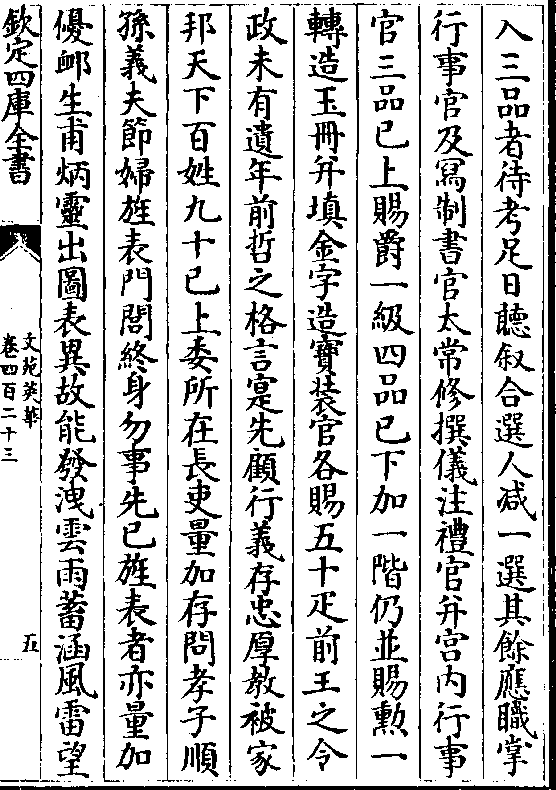 入三品者待考足日聽叙合選人减一選其餘應職掌
行事官及寫制書官太常修撰儀注禮官并宫内行事
官三品已上賜爵一級四品已下加一階仍並賜勲一
轉造玉冊并填金字造寳裝官各賜五十疋前王之令
政未有遺年前哲之格言寔先顧行義存忠厚敎被家
邦天下百姓九十已上委所在長吏量加存問孝子順
孫義夫節婦旌表門閭終身勿事先已旌表者亦量加
優䘏生甫炳靈出圖表異故能發洩雲雨蓄涵風雷望
欽定四庫全書
文苑英華
卷四百二十三
五